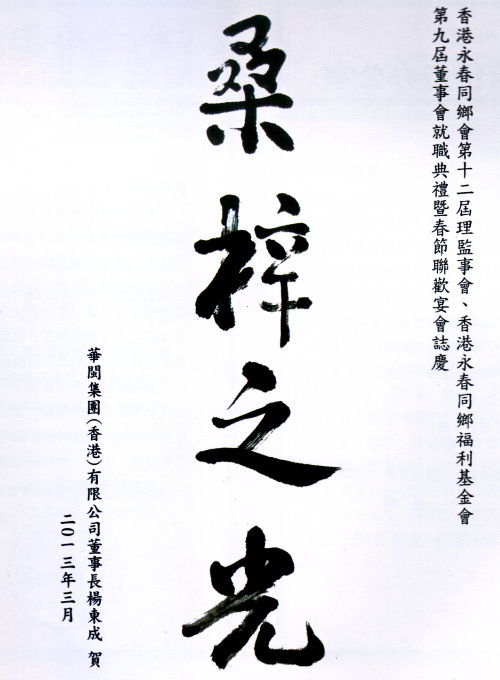 香港永春同鄉會第十二屆理監事會、香港永春同鄉福利基金會
第九屆董事會就職典禮暨春節聯歡宴會誌慶
桑梓之光
華閩集團(香港)有限公司董事長楊東成 賀
二〇一三年三月